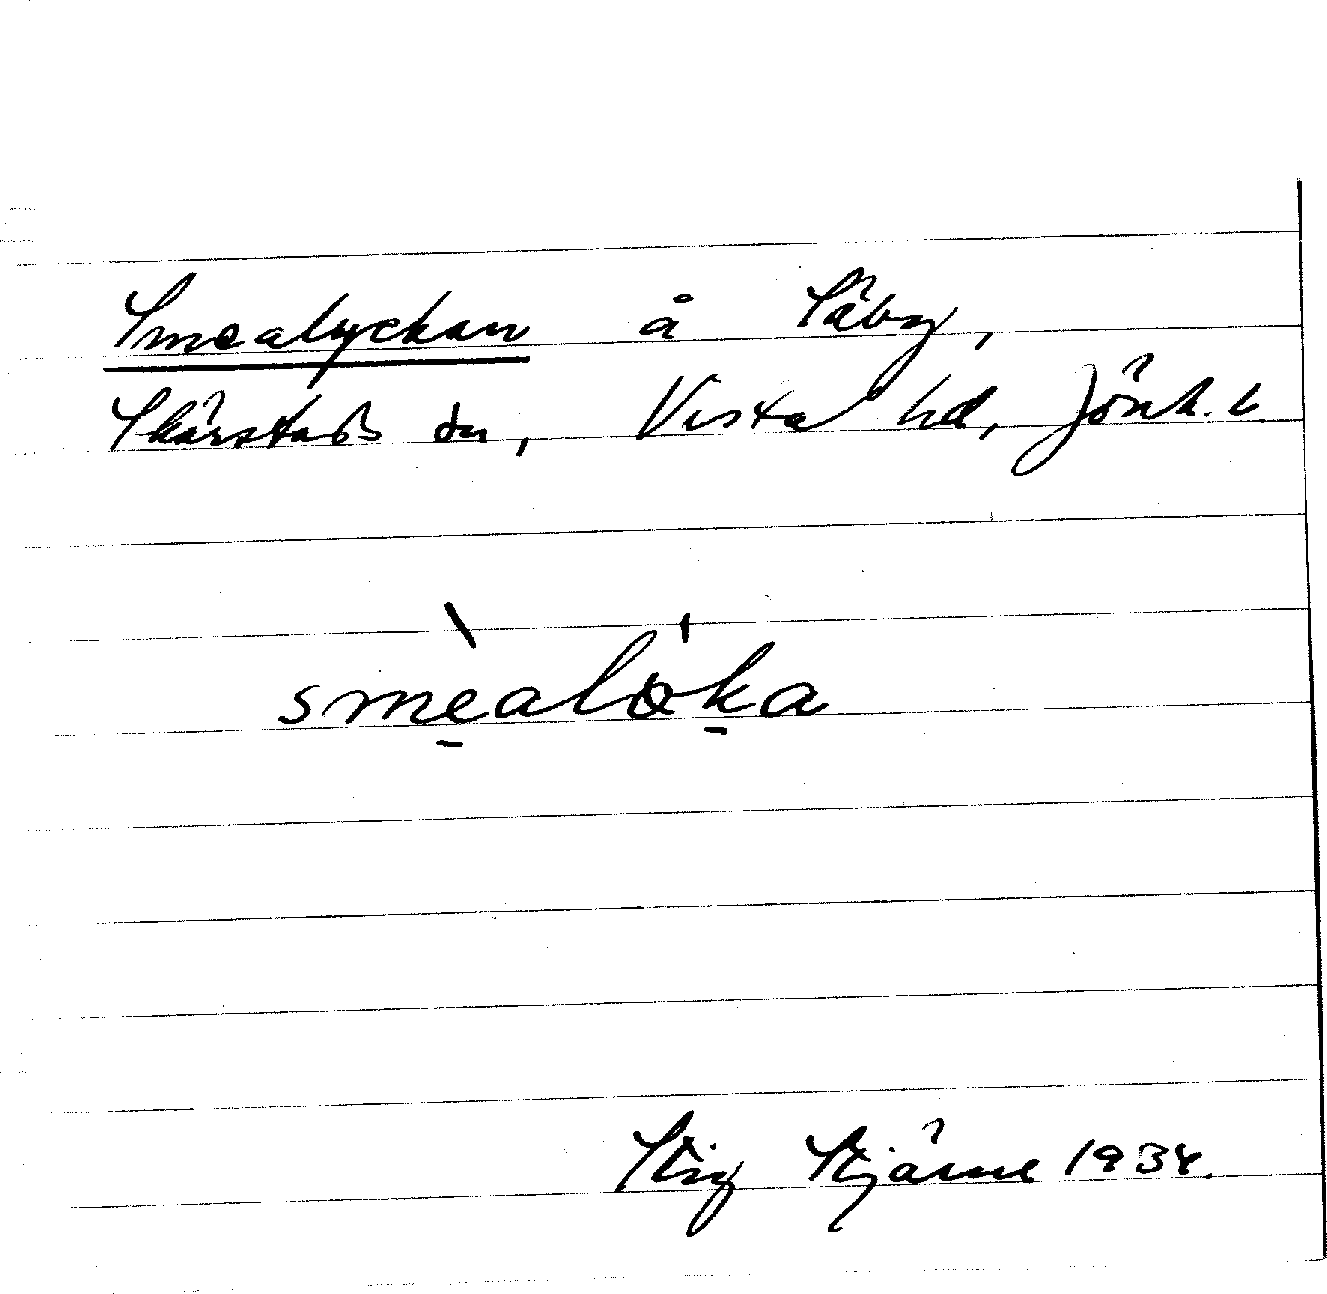 Smealyckan å Säby,
Skärstads sn, Vista hd, Jönk. l.
smealöka
Stig Stjärne 1934.